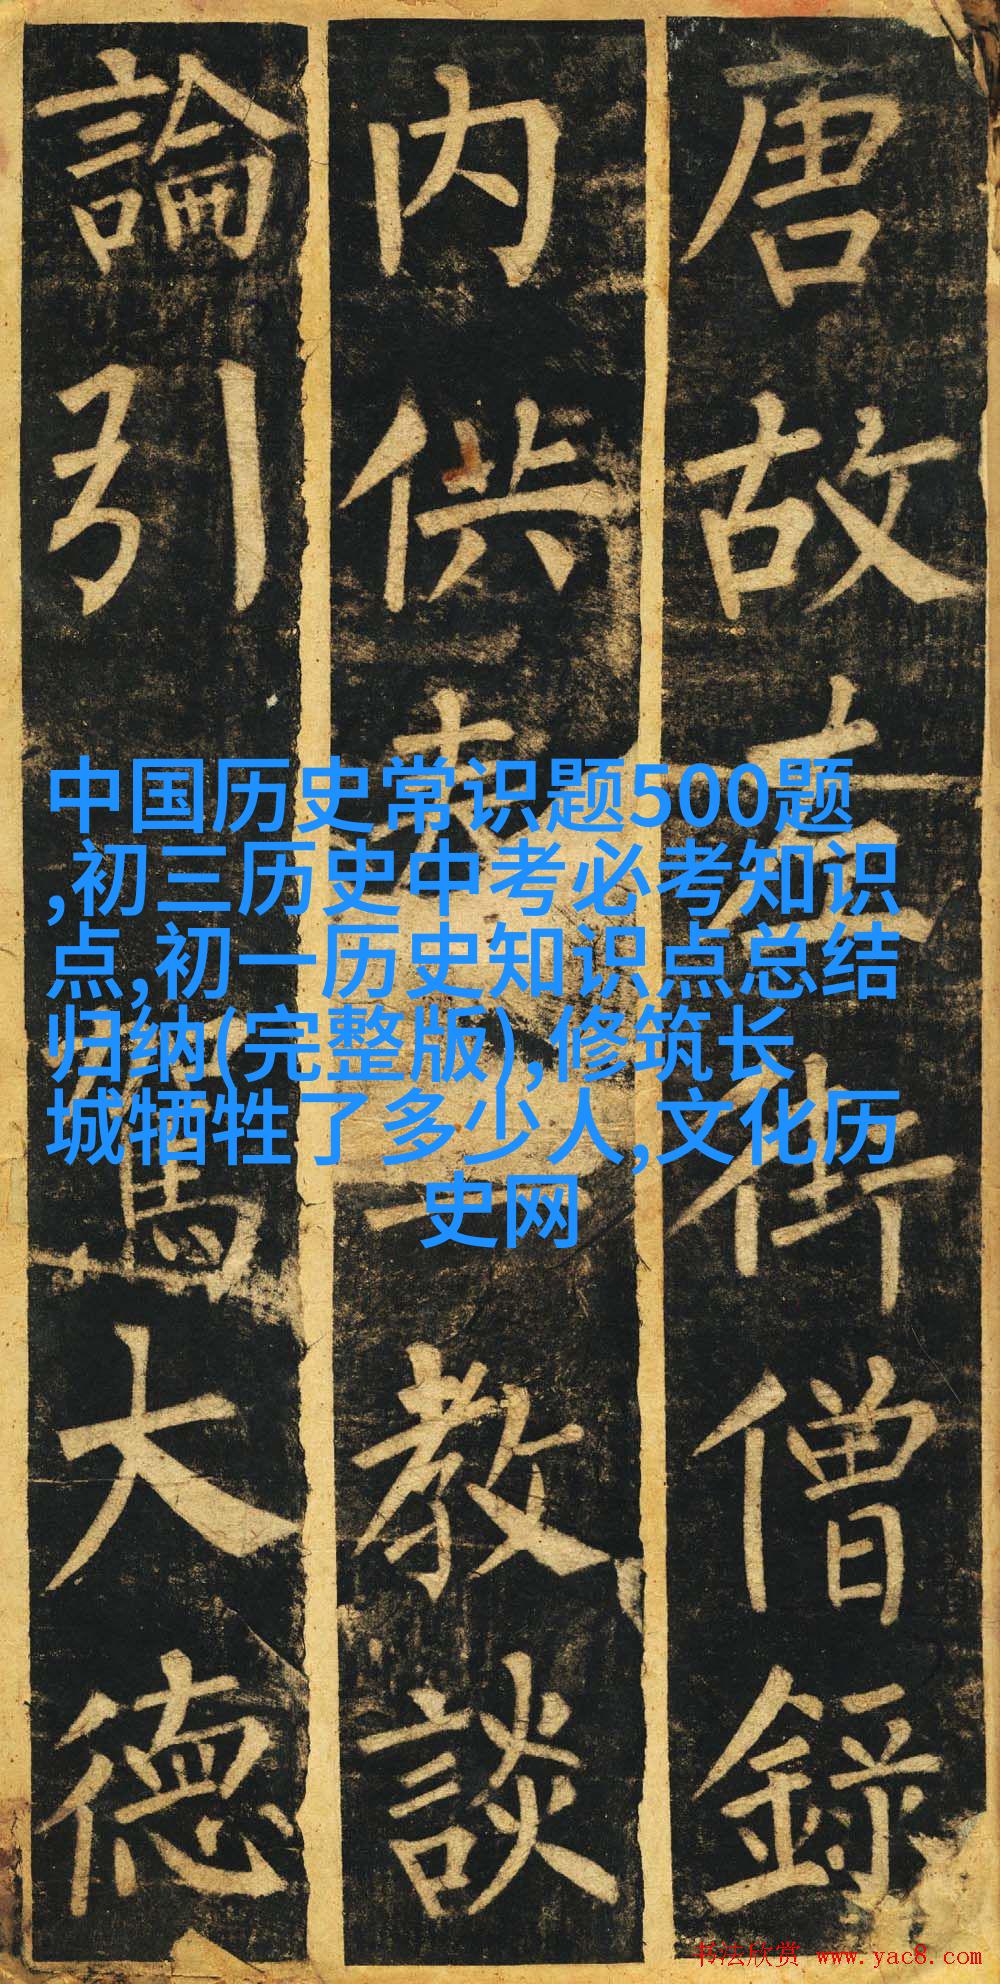 唐故左街僧錄
内供奉三教談
論引駕大德
中国历史常识题500题
,初三历史中考必考知识
点,初一历史知识点总结
归纳(完整版),修筑长
城牺牲了多少人,文化历
史网
书法欣赏 www.yac8.com